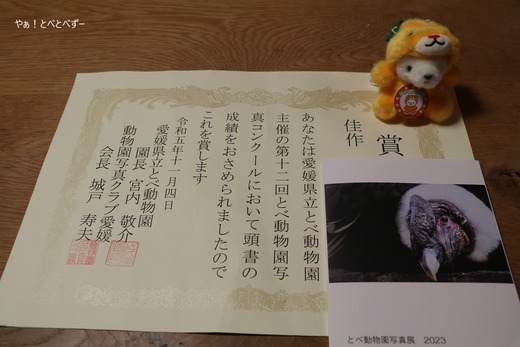 やぁ！とべとべずー
賞
佳作
あなたは愛媛県立とべ動物園
主催の第十二回とべ動物園写
真コンクールにおいて頭書の
成績をおさめられましたので
これを賞します
令和五年十一月四日
愛媛県立とべ動物園
園長 宮内 敬介
動物園写真クラブ愛媛
会長 城戸 寿夫
とべ動物園写真展 2023